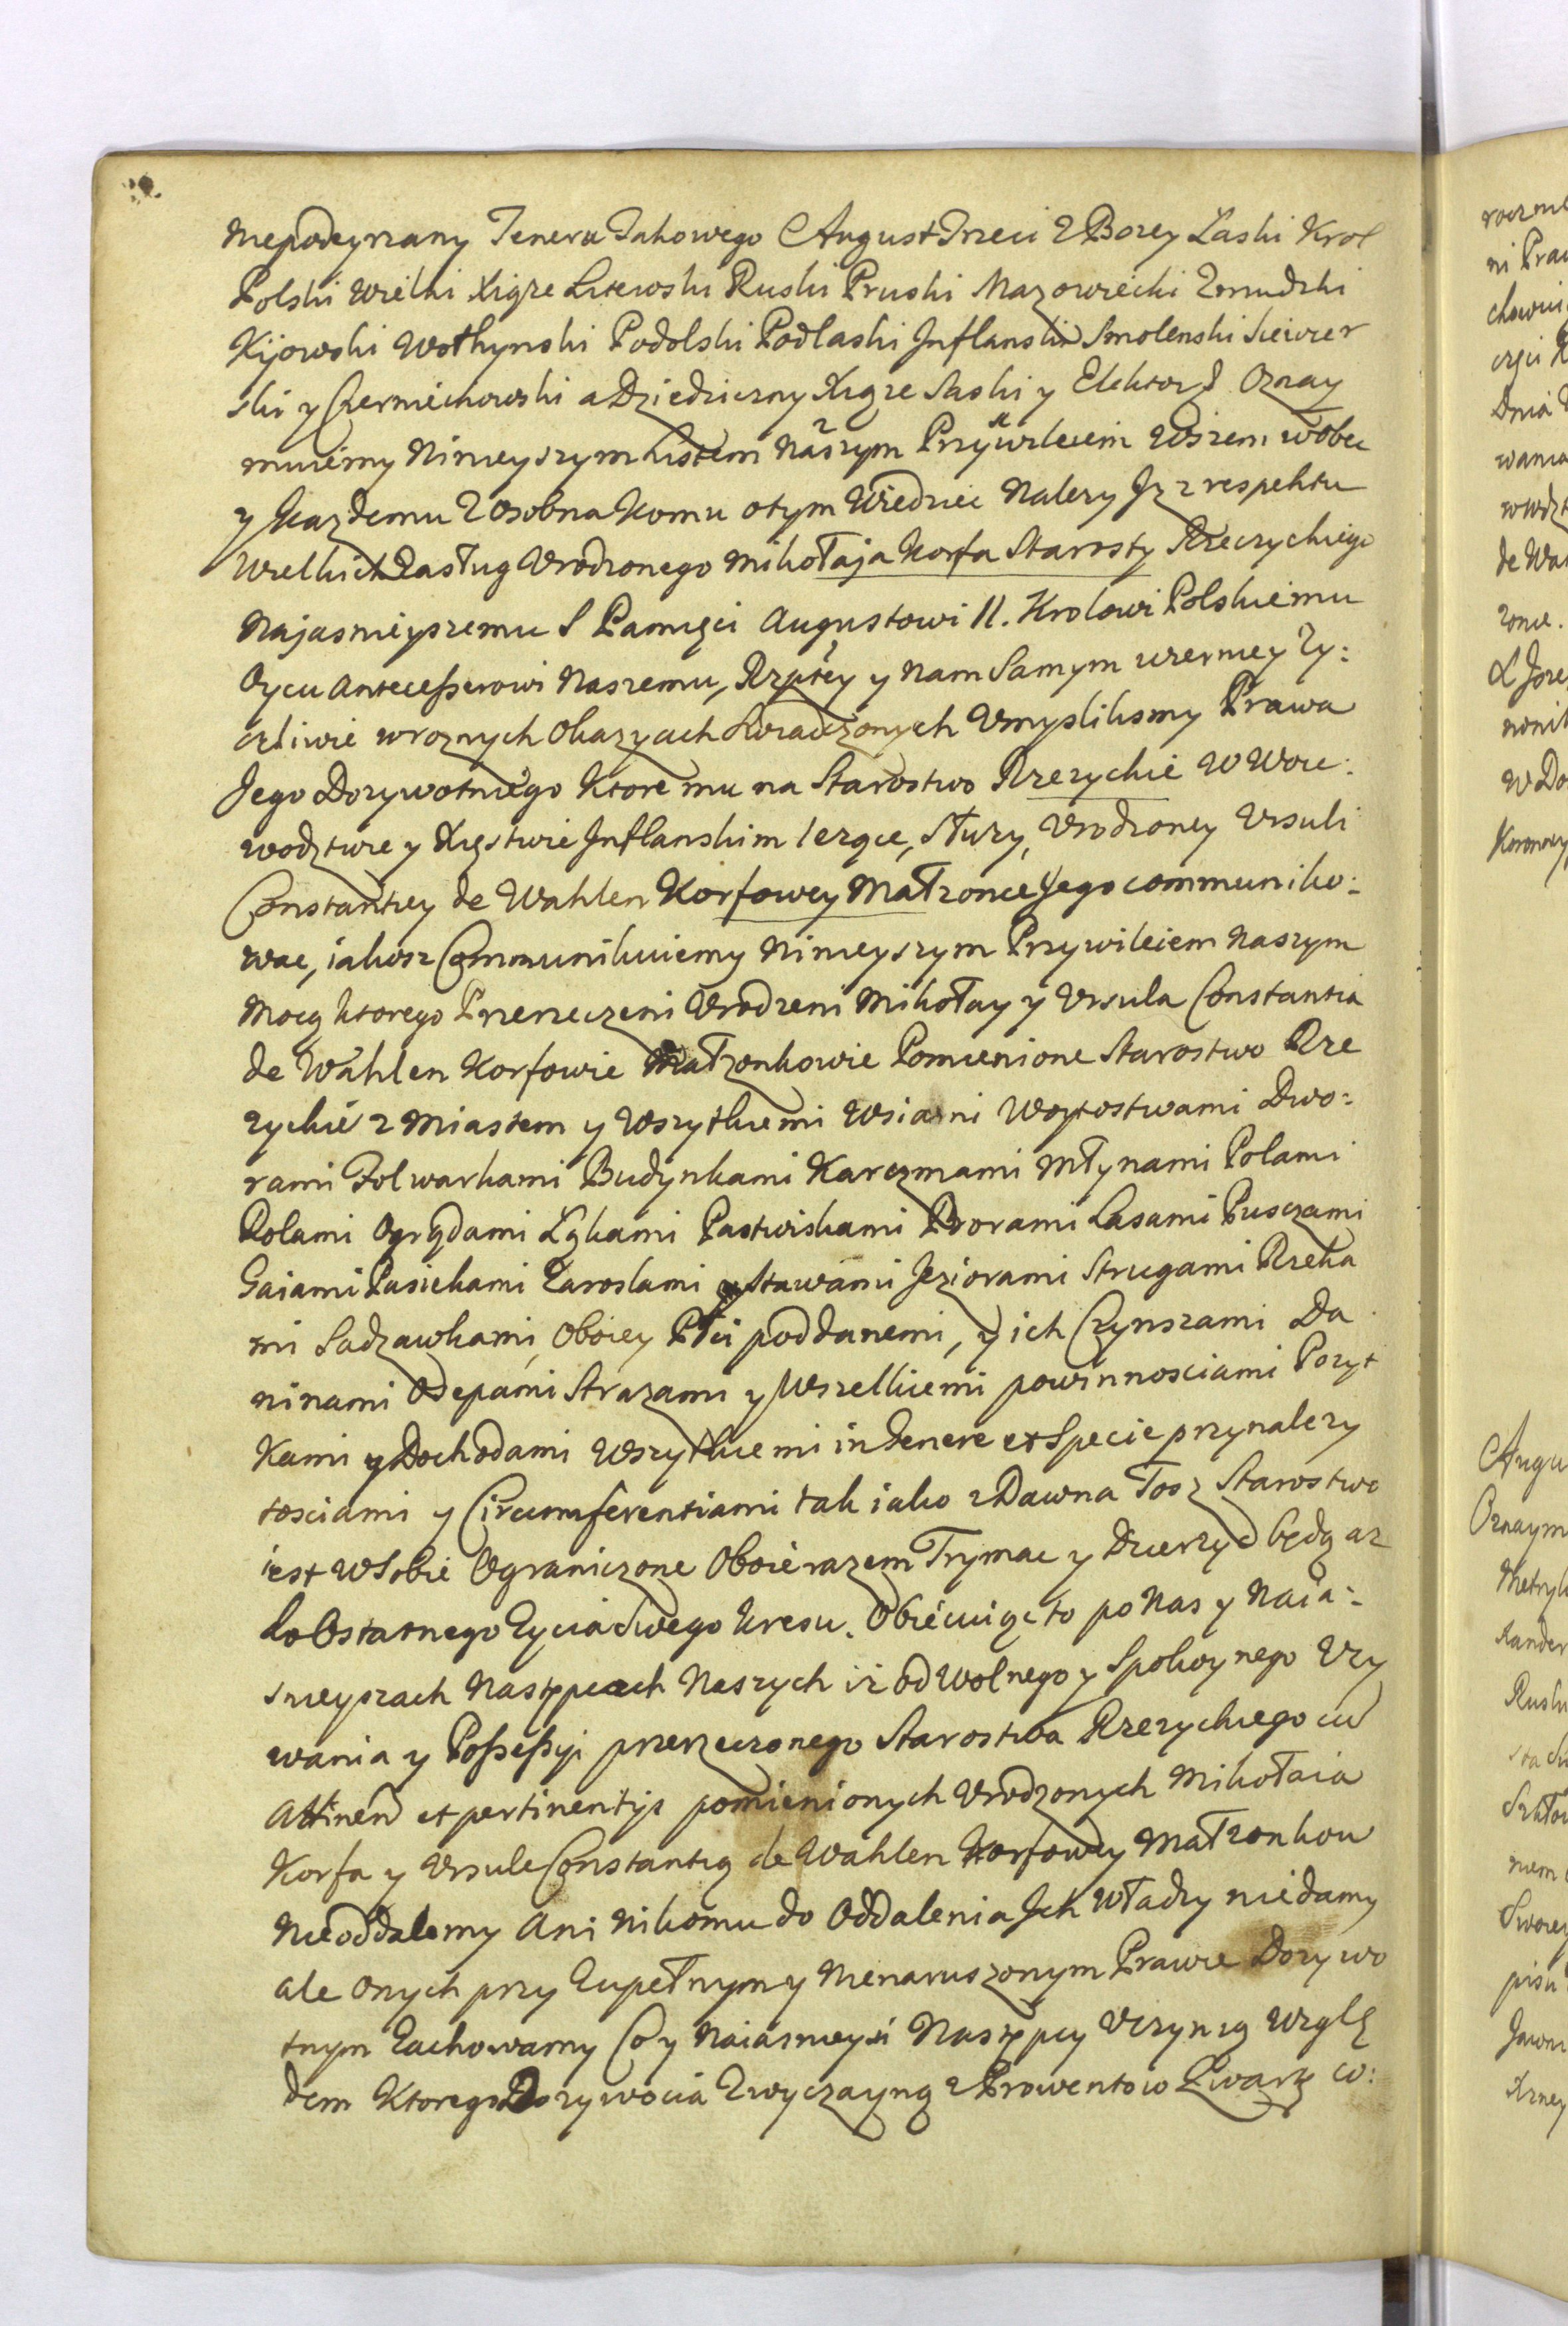 Niepodeyrzany Teneru Takowego August Trzeci Z Bozey Łaski Krol
Polski Wielki Xiąze Litewski Ruski Pruski Mazowiecki Zmudzki
Kijowski Wołhynski Podolski Podlaski Inflanski Smolenski Siewier
ski y Czerniechowski a Dziedziczny Xiąze Saski y Elektor Oznay
muiemy Ninieyszym Listem Naszym Przywileiem Wszem wobec
y Kazdemu Zosobna Komu o tym Wiedziec Nalezy Jz z respektu
Wielkich Zasług Urodzonego Mikołaja Korfa Starosty Rzeczyckiego
Najasnieyszemu S Pamięci Augustowi II. Krolowi Polskiemu
Oycu Antecessorowi Naszemu, Rzptey y Nam Samym wiernie y Zy:
czliwie w roznych Okazyach Swiadczonych Umyslilismy Prawa
Jego Dozywotniego Ktore mu na Starostwo Rzezyckie W Woie:
wodztwie y Xięstwie Inflanskim lezące, słuzy, Urodzoney Ursuli
Constantiey de Wahlen Korfowey Małzonce Jego communiko:
wac, iakosz Communikuiemy Ninieyszym Przywileiem Naszym
Mocą ktorego Przerzeczeni Urodzeni Mikołay y Ursula Constantia
de Wahlen Korfowie Małzonkowie Pomienione Starostwo Rze
zyckie z Miastem y Wszytkiemi Wsiami Woytostwami Dwo:
rami Folwarkami Budynkami Karczmami Młynami Polami
Rolami Ogrodami Łąkami Pastwiskami Borami Lasami Pusczami
Gaiami Pasiekami Zaroslami y Stawami Jeziorami Strugami Rzeka
mi Sadzawkami, Oboiey Płci poddanemi, y ich Czynszami Da
ninami Osepami Strazami y Wszelkiemi powinnosciami Pozyt
kami y Dochodami Wszytkiemi in Genere et Specie przynalezy
tosciami y Circumferentiami tak iako z Dawna Tosz Starostwo
iest W Sobie Ograniczone Oboie razem Trzymac y Dzierzyc będą az
do Ostatnego Zycia Swego Kresu. Obiecuiąc to po Nas y Naia:
snieyszach Następcach Naszych iz od Wolnego y Spokoynego Uzy
wania y Possessyi przerzeczonego Starostwa Rzezyckiego cu
Attinen et pertinentijs pomienionych Urodzonych Mikołaia
Korfa y Ursule Constantią de Wahlen Korfowey Małzonkow
Nieoddalemy Ani Nikomu do Oddalenia Jch Władzy niedamy
ale Onych przy Zupełnym y Nienaruszonym Prawie Dozywo
tnym Zachowamy Co y Naiasnieysi Następcy Uczynią Wzglę
dem Ktorego Dozywocia Zwyczayną z Prowentow Kwartę co: